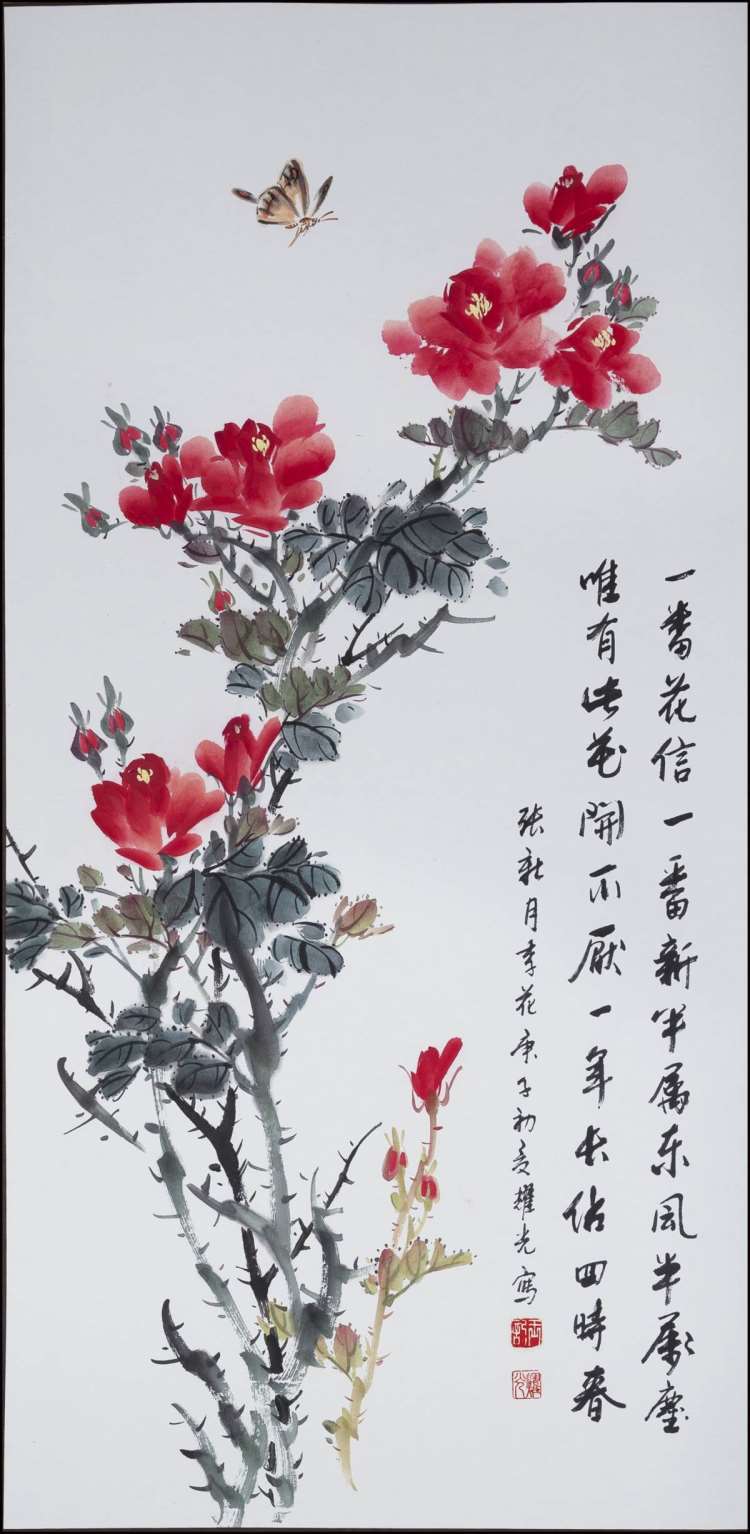 一番花信一番新半属东风半属塵
唯有此花開不厭一年长佔四時春
张新月季花庚子初夏耀光寫
耀光